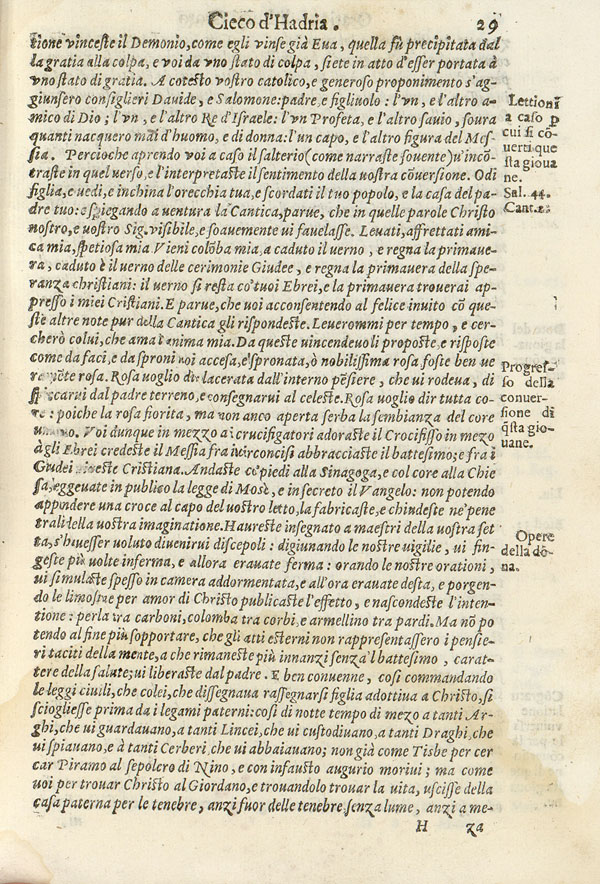 Cieco d'Hadria. 29
tione vinceste il Demonio, come egli vinse già Eua, quella fù precipitata dal
la gratia alla colpa, e voi da vno stato di colpa, siete in atto d'esser portata à
vno stato di gratia. A cotesto vostro catolico, e generoso proponimento s'ag-
giunsero consiglieri Dauide, e Salomone: padre, e figliuolo: l'vn, e l'altro a-
mico di Dio; l'vn, e l'altro Re d'Israele: l'vn Profeta, e l'altro sauio, soura
quanti nacquero mai d'huomo, e di donna: l'un capo, e l'altro figura del Mes-
sia. Percioche aprendo voi a caso il salterio (come narraste souente) u'incō-
traste in quel verso, e l'interpretaste il sentimento della uostra cōuersione. Odi
figlia, e uedi, e inchina l'orecchia tua, e scordati il tuo popolo, e la casa del pa-
dre tuo: e spiegando a uentura la Cantica, parue, che in quelle parole Christo
nostro, e uostro Sig. visibile, e soauemente ui fauelasse. Leuati, affrettati ami-
ca mia, spetiosa mia Vieni colōba mia, a caduto il uerno, e regna la primaue-
ra, caduto è il uerno delle cerimonie Giudee, e regna la primauera della spe-
ranza christiani: il uerno si resta co'tuoi Ebrei, e la primauera trouerai ap-
presso i miei Cristiani. E parue, che uoi acconsentendo al felice inuito cō que-
ste altre note pur della Cantica gli rispondeste. Leuerommi per tempo, e cer-
cherò colui, che ama l'anima mia. Da queste uincendeuoli proposte, e risposte
come da faci, e da sproni uoi accesa, e spronata, ò nobilissima rosa foste ben ue
rosa. Rosa uoglio dir lacerata dall'interno pēsiere, che ui rodeua, di
spiccarui dal padre terreno, e consegnarui al celeste. Rosa uoglio dir tutta co-
re: poiche la rosa fiorita, ma non anco aperta serba la sembianza del core
Voi dunque in mezzo a i crucifigatori adoraste il Crocifisso in mezo
à gli Ebrei credeste il Messia fra i uirconcisi abbracciaste il battesimo; e fra i
Giudei uiueste Cristiana. Andaste cō piedi alla Sinagoga, e col core alla Chie
sa, leggeuate in publico la legge di Mosè, e in secreto il Vangelo: non potendo
appendere una croce al capo del uostro letto, la fabricaste, e chiudeste ne'pene
trali della uostra imaginatione. Haureste insegnato a maestri della uostra set
ta, s'hauesser uoluto diuenirui discepoli: digiunando le nostre uigilie, ui fin-
geste più uolte inferma, e allora erauate ferma: orando le nostre orationi,
ui simulaste spesso in camera addormentata, e all'ora erauate desta, e porgen-
do le limosine per amor di Christo publicaste l'effetto, e nascondeste l'inten-
tione: perla tra carboni, colomba tra corbi, e armellino tra pardi. Ma nō po
tendo al fine più sopportare, che gli atti esterni non rappresentassero i pensie-
ri taciti della mente, a che rimaneste più innanzi senza'l battesimo, carat-
tere della salute; ui liberaste dal padre. E ben conuenne, così commandando
le leggi ciuili, che colei, che dissegnaua rassegnarsi figlia adottiua a Christo, si
sciogliesse prima da i legami paterni: così di notte tempo di mezo a tanti Ar-
ghi, che ui guardauano, a tanti Lincei, che ui custodiuano, a tanti Draghi, che
ui spiauano, e à tanti Cerberi, che ui abbaiauano; non già come Tisbe per cer
car Piramo al sepolcro di Nino, e con infausto augurio moriui; ma come
uoi per trouar Christo al Giordano, e trouandolo trouar la uita, uscisse della
casa paterna per le tenebre, anzi fuor delle tenebre, senza lume, anzi a me-
H za
Lettioni
a caso p
cui si cō
uertì que
sta gioua
ne.
Sal. 44.
Cant. 2.
Progres-
so della
conuer-
sione di
q̄sta gio-
uane.
Opere
della dō-
na.